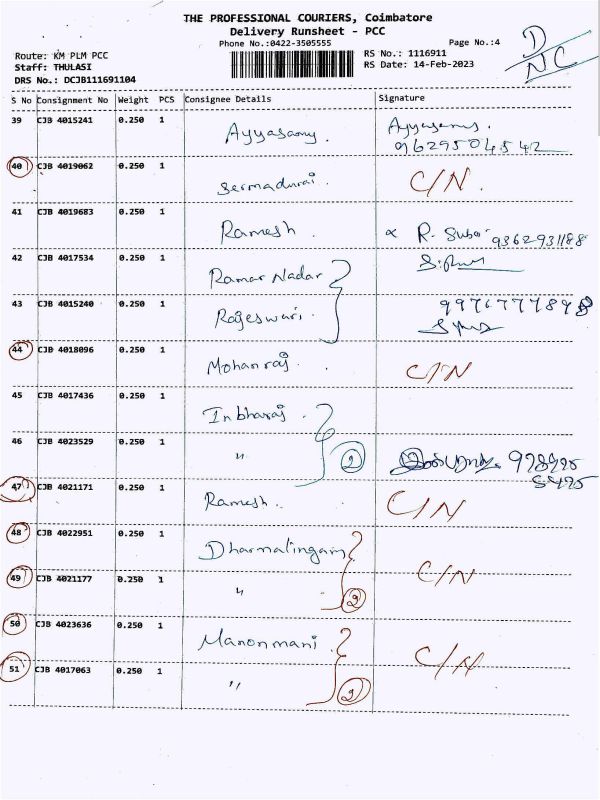 THE PROFESSIONAL COURIERS, Coimbatore
Delivery Runsheet - PCC
Phone No.:0422-3505555
Page No.:4
D/NC
Route: KM PLM PCC
RS No.: 1116911
Staff: THULASI
RS Date: 14-Feb-2023
DRS No.: DCJB111691104
S No Consignment No Weight PCS Consignee Details Signature
39 CJB 4015241 0.250 1 Ayyasamy Ayyasamy.
9629504542
40 CJB 4019062 0.250 1 Sermadurai. C/N.
41 CJB 4019683 0.250 1 Ramesh. R. Suba 9362931188
42 CJB 4017534 0.250 1 Ramar Nadar
43 CJB 4015240 0.250 1 Rajeswari.
44 CJB 4018096 0.250 1 Mohanraj. C/N
45 CJB 4017436 0.250 1 Inbharaj.
46 CJB 4023529 0.250 1 " 2
47 CJB 4021171 0.250 1 Ramesh. C/N
48 CJB 4022951 0.250 1 Dharmalingam
49 CJB 4021177 0.250 1 " 2 C/N
50 CJB 4023636 0.250 1 Manonmani. C/N
51 CJB 4017063 0.250 1 " 2